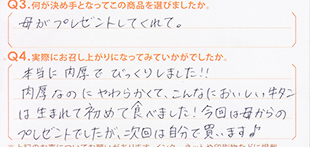 Q3.何が決め手となってこの商品を選びましたか。
母がプレゼントしてくれて。
Q4.実際にお召し上がりになってみていかがでしたか。
本当に肉厚でびっくりしました!!
肉厚なのにやわらかくて、こんなにおいしい牛タン
は生まれて初めて食べました!今回は母からの
プレゼントでしたが、次回は自分で買います♪